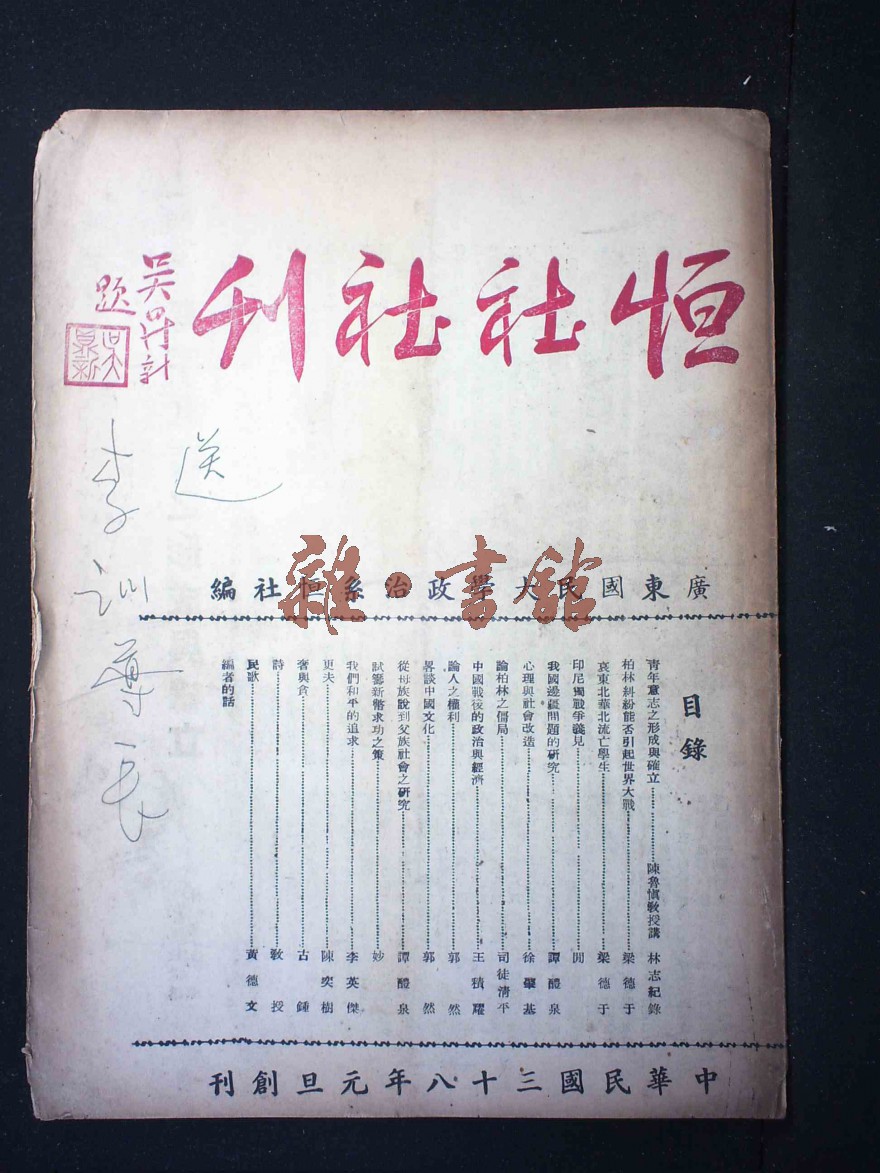 恒社社刊
題
送
李訓華
廣東國民大學政治系恒社編
雜·書館
目錄
青年意志之形成與確立……陳魯愼敎授講 林志紀錄
柏林糾紛能否引起世界大戰……梁德于
哀東北華北流亡學生……梁德于
印尼獨戰爭義見……閒
我國邊疆問題的研究……譚醴泉
心理與社會改造……徐肇基
論柏林之僵局……司徒淸平
中國戰後的政治與經濟……王積耀
論人之權利……郭然
畧談中國文化……郭然
從母族說到父族社會之研究……譚醴泉
試籌新幣求功之策……妙
我們和平的追求……李英傑
更夫……陳奕樹
奢與貪……古鍾
詩……敎授
民歌……黃德文
編者的話
中華民國三十八年元旦創刊